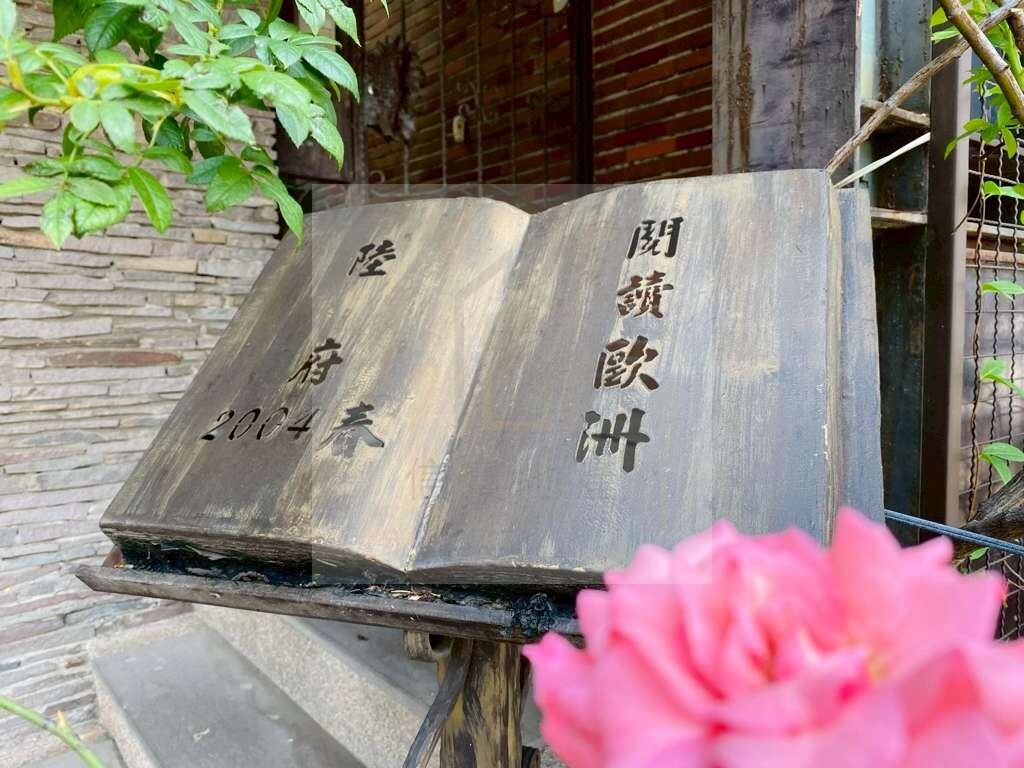 閱讀歐洲
陸府
春
2004